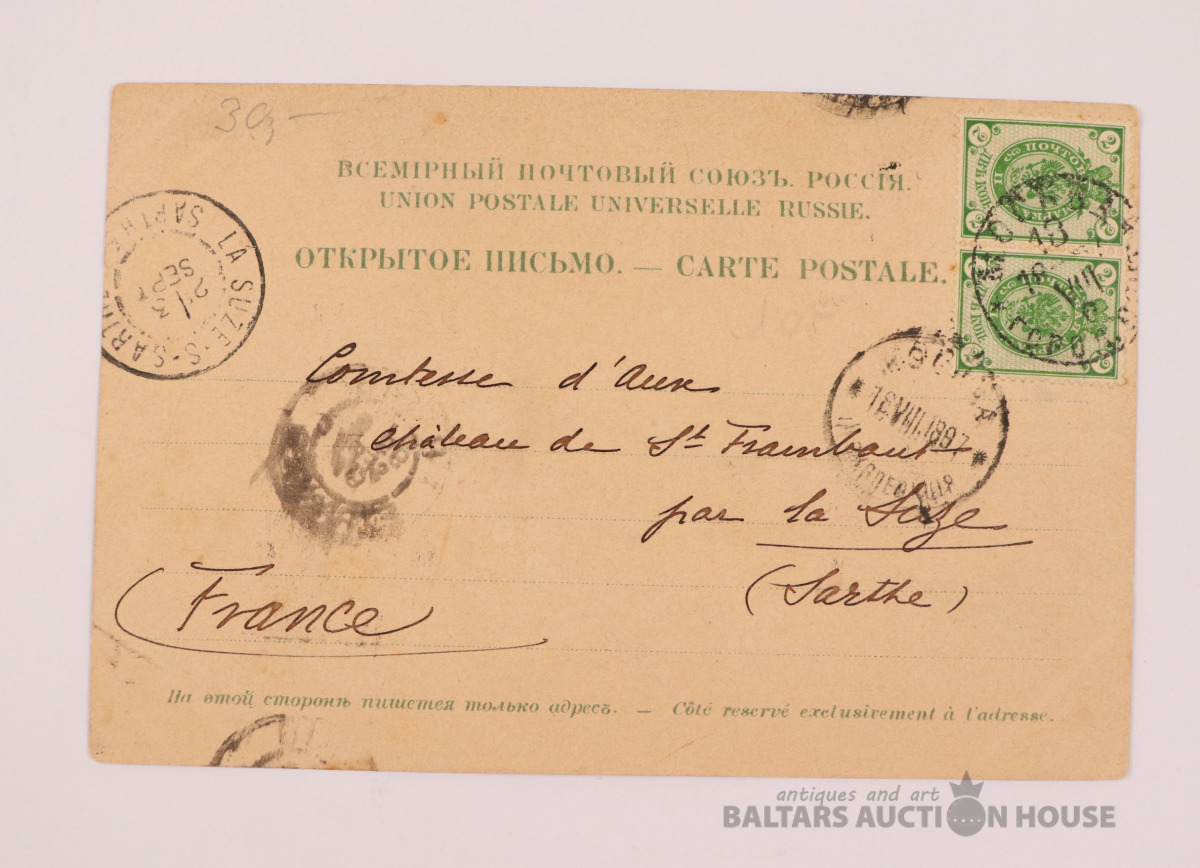 30
ВСЕМІРНЫЙ ПОЧТОВЫЙ СОЮЗЪ. РОССІЯ.
UNION POSTALE UNIVERSELLE RUSSIE.
ОТКРЫТОЕ ПИСЬМО. — CARTE POSTALE.
2 2
ПОЧТОВ
МАРКА
2 2
LA SUZE-S-SARTHE
SARTHE
SEPT
МОСКВА
18 VIII 1897
Comtesse d'Aux
Château de St Frambault
par la Suze
(Sarthe)
France
На этой сторонѣ пишется только адресъ. — Côté reservé exclusivement à l'adresse.
antiques and art
BALTARS AUCTION HOUSE